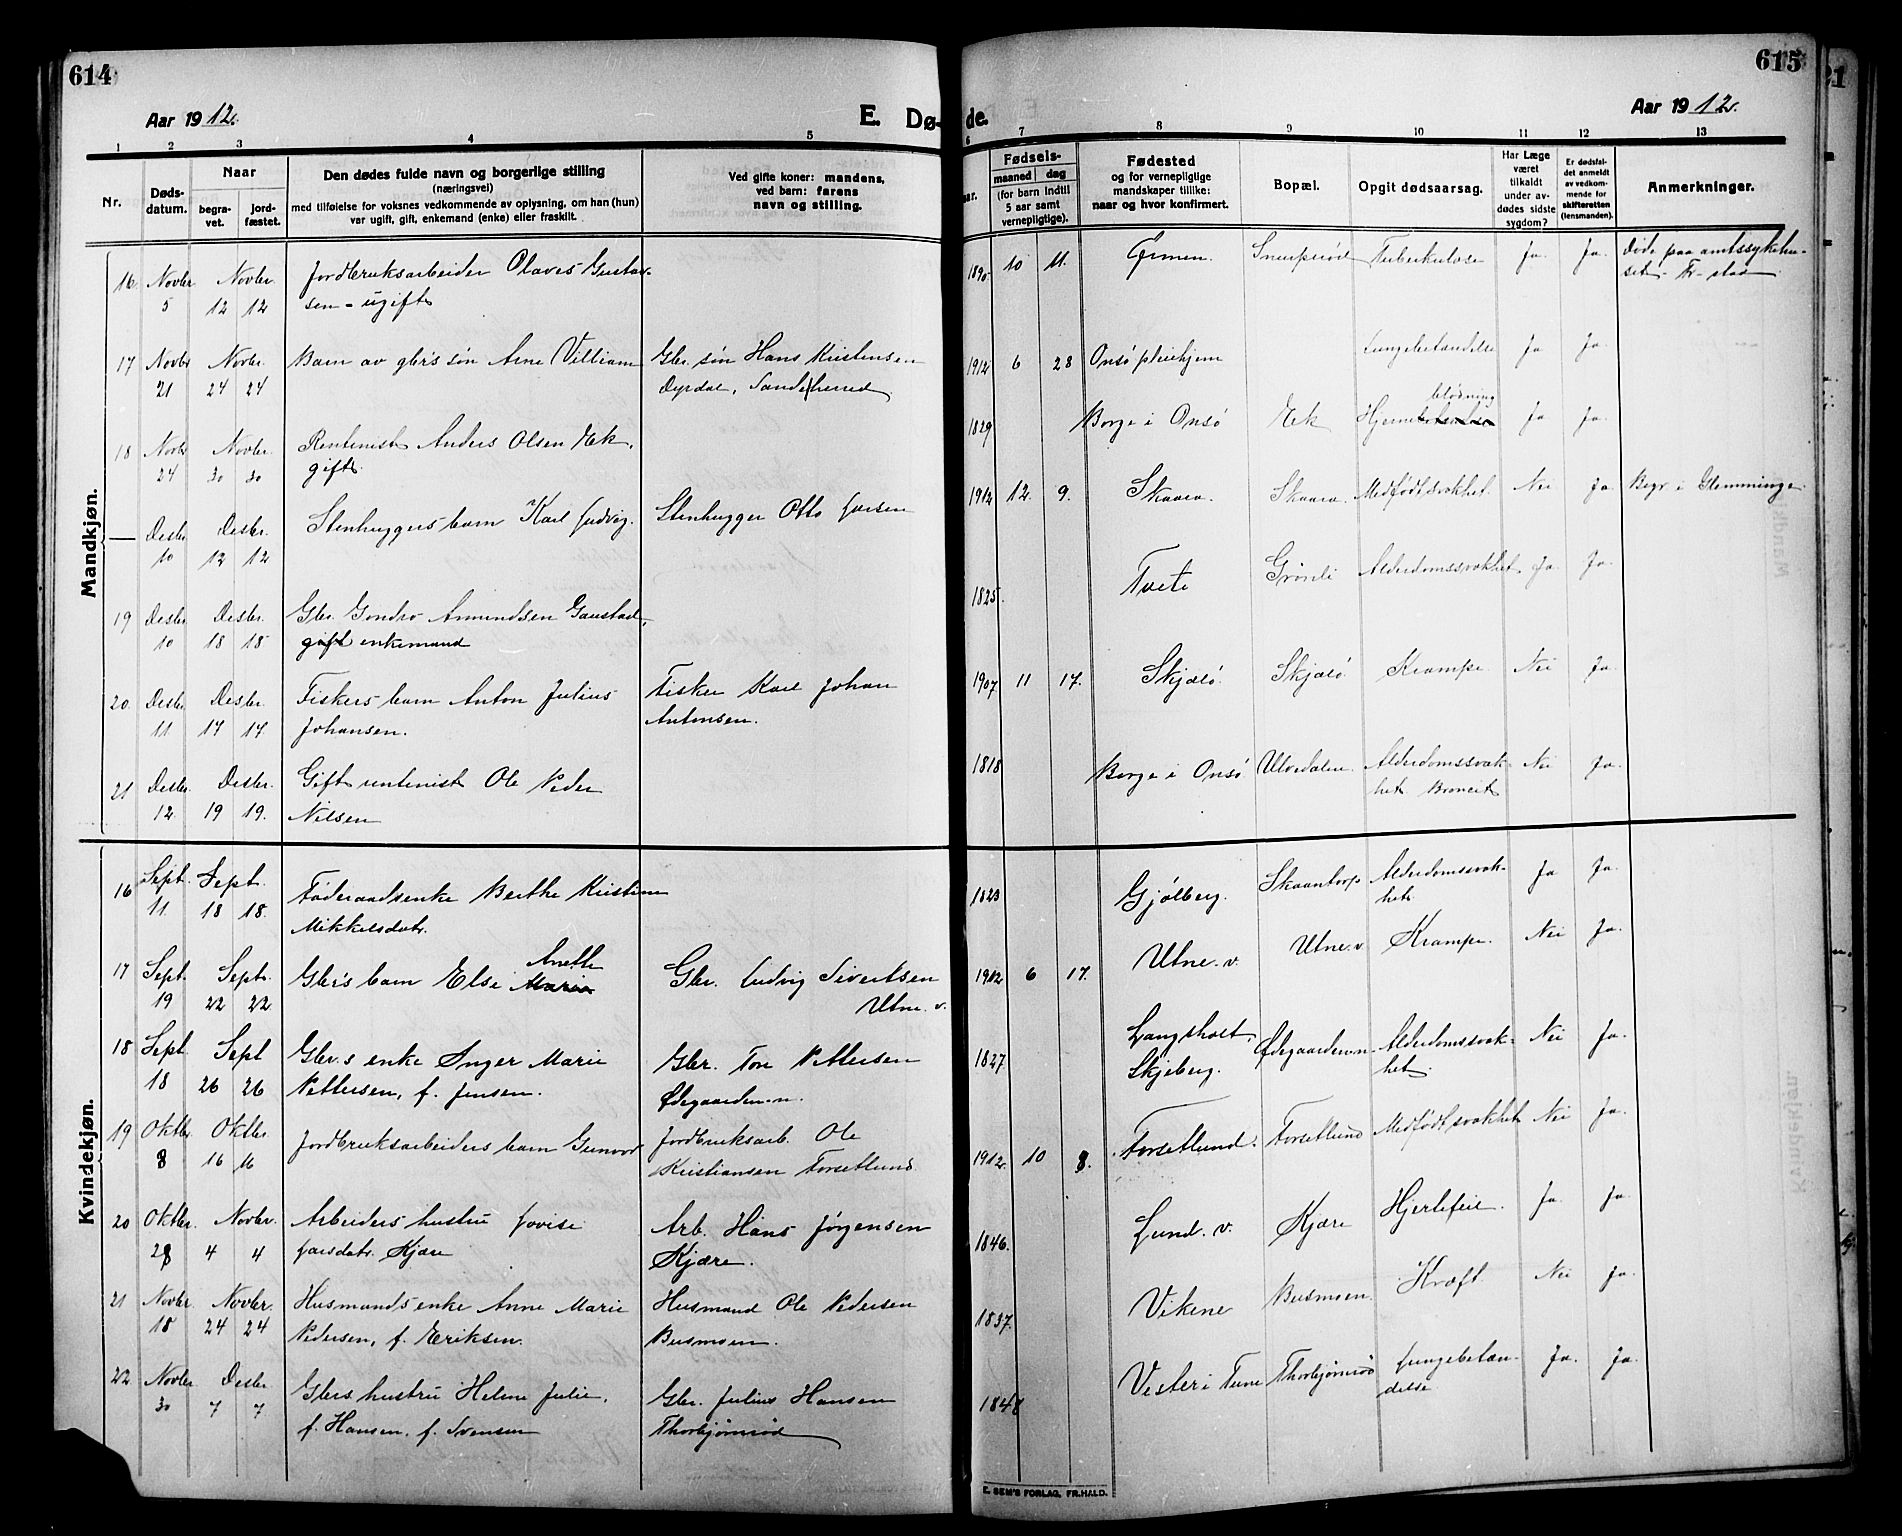 614
615
Aar 1912.
E. Dø-
de.
Aar 1912.
1 2 3 4 5
6 7 8 9 10 11 12 13
Nr.
Døds-
datum.
Naar
begra-
vet.
jord-
fæstet.
Den dødes fulde navn og borgerlige stilling
(næringsvei)
med tilføielse for voksnes vedkommende av oplysning, om han (hun)
var ugift, gift, enkemand (enke) eller fraskilt.
Ved gifte koner: mandens,
ved barn: farens
navn og stilling.
Fødsels-
maaned dag
(for barn indtil
5 aar samt
vernepligtige).
Fødested
og for vernepligtige
mandskaper tillike:
naar og hvor konfirmert.
Bopæl.
Opgit dødsaarsag.
Har Læge
været
tilkaldt
under av-
dødes sidste
sygdom?
Er dødsfal-
det anmeldt
av vedkom-
mende for
skifteretten
(lensmanden).
Anmerkninger.
Mandkjøn.
16 Novbr. 5 Novbr. 12 12 Jordbruksarbeider Olaves Gustav-
sen - ugift
1890 10 11. Tuberkulose Ja Ja. Døde paa amtssykehu-
set Fr-stad
17 Novbr 21 Novbr. 24 24 Barn av gbr's søn Arne Villiam Gbr. søn Hans Kristensen
Dyrdal, Sandeherred
1912 6 28 Onsø pleiehjem Lungebetændelse Ja Ja.
18 Novbr 24 Novbr. 30 30 Rentenist Anders Olsen Ek.
gift.
1829 Borge i Onsø Ek Hjerneblødning Ja Ja.
— Desbr 10 Desbr. 12 12 Stenhuggers barn Karl Ludvig. Stenhugger Otto Larsen
1912 12. 9. Skaara. Skaara. Medfødt svakhet. Nei Ja. Begr. i Glemminge.
19 Desbr. 10 Desbr. 18 18 Gbr. Amundsen Gaustad,
gift enkemand
1825. Tvete Grønli Alderdomssvakhet Ja. Ja.
20. Desbr. 11. Desbr. 17 17 Fiskers barn Anton Julius
Johansen.
Fisker Karl Johan
Antonsen.
1907 11 17. Skjælø. Skjælø Krampe Nei Ja.
21 Desbr. 12. Desbr. 19 19. Gift rentenist Ole Peder
Nilsen
1818 Borge i Onsø Ulvedalen. Alderdomssvak-
het Broncit
Nei Ja.
Kvindekjøn.
16 Sept. 11. Sept. 18 18. Føderaadsenke Berthe Kristine
Mikkelsdatr.
1823 Gjølberg. Skaantorp Alderdomssvak-
het.
Ja Ja.
17 Sept. 19 Sept. 22 22. Gbr's barn Else Marie Anette
Gbr. Ludvig Sivertsen
Utne. v.
1912 6 17. Utne. v. Utne. v Krampe. Nei Ja.
18 Sept. 18 Sept 26 26 Gbr.s enke Inger Marie
Pettersen, f. Jensen.
Gbr. Tore Pettersen
Ødegaarden. n.
1827 Langsholt,
Skjeberg.
Ødegaarden. n Alderdomssvak-
het.
Nei Ja.
19 Oktbr. 8 Oktbr. 16 16 Jordbruksarbeiders barn Gunvor Jordbruksarb. Ole
Kristiansen Torsetlund
1912. 10 8. Torsetlund. Torsetlund Medfødt svakhet Nei Ja.
20 Oktbr. 28 Novbr. 4 4 Arbeiders hustru Lovise
Larsdatr. Kjære
Arb. Hans Jørgensen
Kjære.
1846. Lund. v. Kjære Hjertefeil. Ja. Ja.
21 Novbr. 18 Novbr. 24 24 Husmands enke Anne Marie
Pedersen, f. Eriksen.
Husmand Ole Pedersen
Busmoen.
1837. Vikene Busmoen Kræft. Nei Ja.
22. Novbr. 30 Desbr 7 7 Gbrs hustru Helene Julie.
f. Hansen. f. Svensen
Gbr. Julius Hansen
Thorbjørnsrød
Vester i Tune Thorbjørnsrød Lungebetæn-
delse
Ja. Ja.
E. SEM'S FORLAG, FR.HALD.